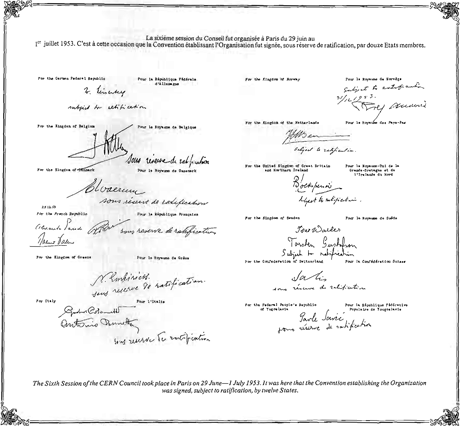 La sixième session du Conseil fut organisée à Paris du 29 juin au
1er juillet 1953. C'est à cette occasion que la Convention établissant l'Organisation fut signée, sous réserve de ratification, par douze Etats membres.
For the German Federal Republic Pour la République Fédérale d'Allemagne
subject to ratification
For the Kingdom of Belgium Pour le Royaume de Belgique
sous réserve de ratification
For the Kingdom of Denmark Pour le Royaume de Danemark
sous réserve de ratification
For the French Republic Pour la République Française
sous reserve de ratification
For the Kingdom of Greece Pour le Royaume de Grèce
sous reserve de ratification
For Italy Pour l'Italie
Antonio
sous reserve de ratification
For the Kingdom of Norway Pour le Royaume de Norvège
Subject to ratification
31/12 1953.
For the Kingdom of the Netherlands Pour le Royaume des Pays-Bas
subject to ratification.
For the United Kingdom of Great Britain and Northern Ireland Pour le Royaume-Uni de la Grande-Bretagne et de l'Irlande du Nord
Subject to ratification.
For the Kingdom of Sweden Pour le Royaume de Suède
Torsten Gustafson
Subject to ratification
For the Confederation of Switzerland Pour la Confédération Suisse
sous réserve de ratification
For the Federal People's Republic of Yugoslavia Pour la République Fédérative Populaire de Yougoslavie
Pavle Savić
sous réserve de ratification
The Sixth Session of the CERN Council took place in Paris on 29 June—1 July 1953. It was here that the Convention establishing the Organization
was signed, subject to ratification, by twelve States.